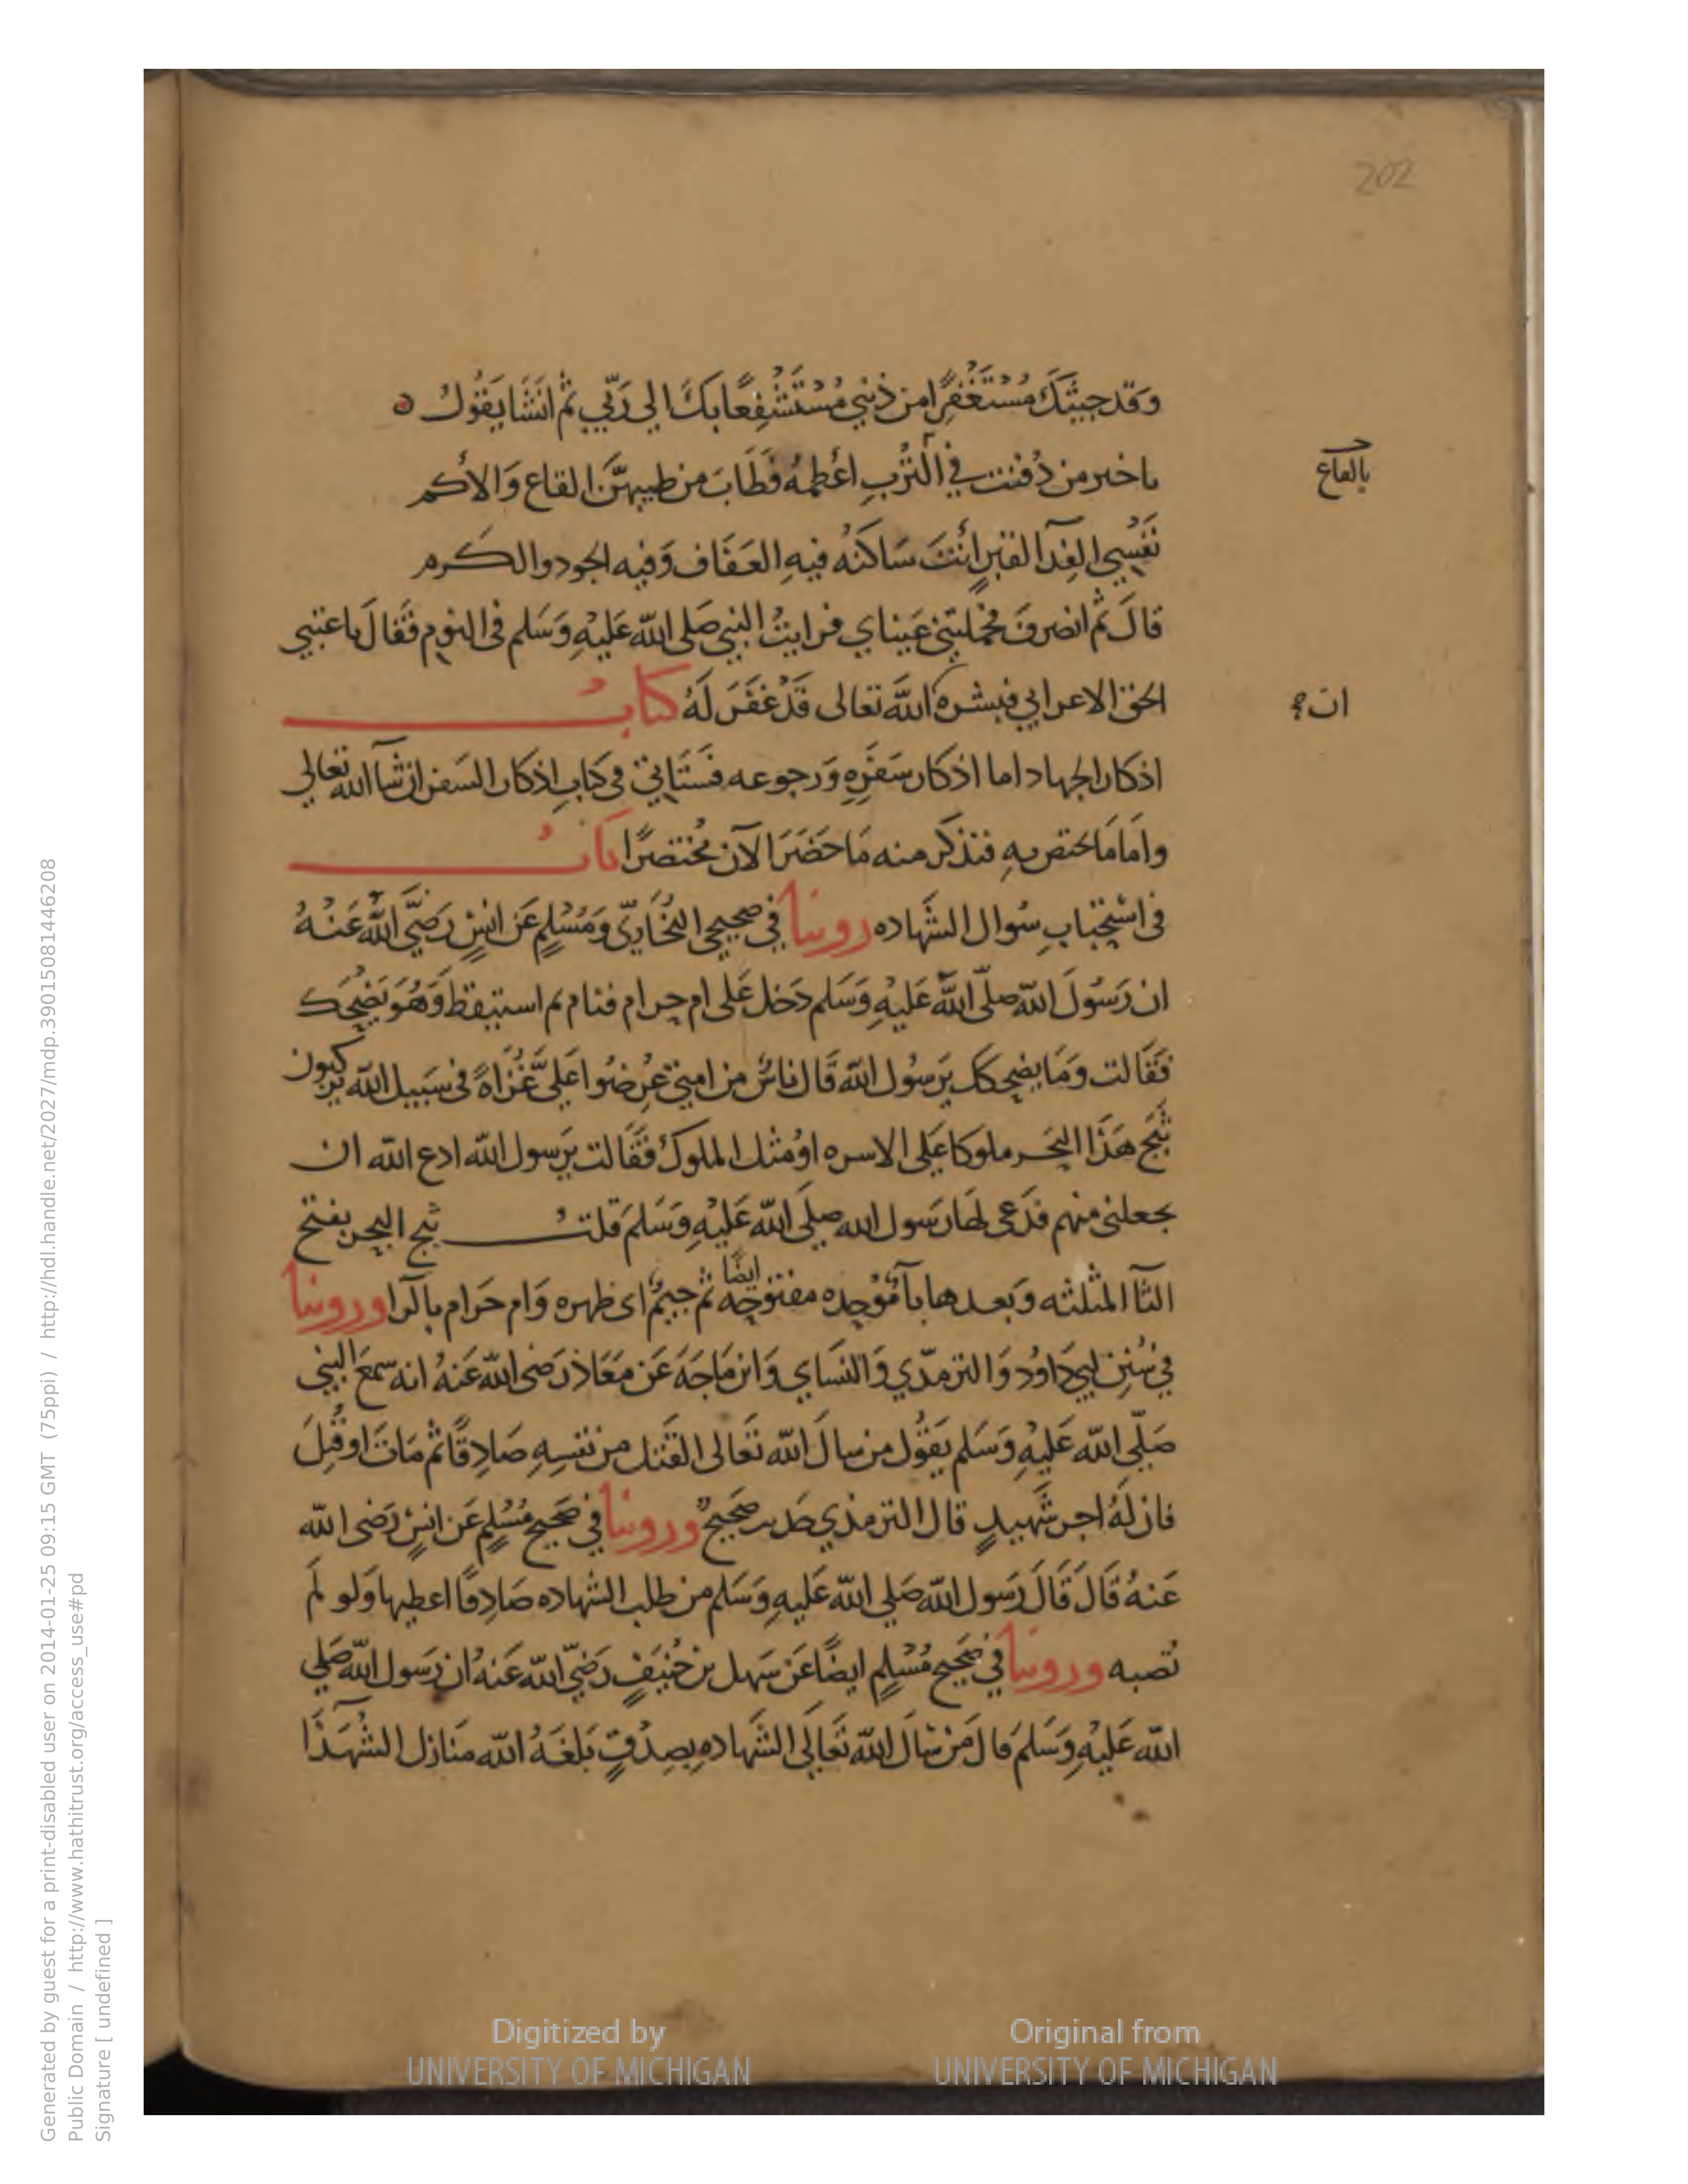 202
وَقَد جيتُكَ مُسْتَغْفِرًا من ذَنْبي مُسْتَشْفِعًا بكَ الى رَبّي ثم انشَا يَقُولُ
يا خير من دُفنت في التُّربِ اعْظمُهُ فَطَابَ من طيبهنَّ القاع وَالاكم
بالقاع
نَفْسِي الفِدَا لقبرٍ أَنْتَ سَاكنُهُ فيهِ العَفَاف وَفيه الجود والكرم
قالَ ثم انصرفَ فحملتني عَيناي فرايتُ النبي صَلى الله عَليْهِ وَسَلم فى النوم فَقالَ يا عتبي
الحق الاعرابي فبشره الله تعالى قَدْ غفَرَ لَهُ كتابُ
ان
اذكار الجهاد اما اذكار سَفَرِهِ وَرجوعه فسَتَاتي فى كتابِ اذكار السَفر ان شآ الله تعالى
وامَا مَا يختص بهِ فنذكر منه مَا حَضَرَ الآن مُختصرًا بابُ
فى اسْتِحْبابِ سُوال الشَّهاده روينا في صحيحي البُخَاريّ وَمُسْلِمٍ عَن انسٍ رَضيَ اللهُ عَنْهُ
ان رَسُولَ الله صلّى اللهُ عَليْهِ وَسَلم دَخل عَلى ام حرام فنام ثم استيقظ وَهُوَ يَضْحَك
فَقَالت وَمَا يضحكك يَرسُول الله قَال ناسٌ من امتي عُرِضُوا عَليَّ غُزَاةً فى سَبيل الله يركبون
ثَبَج هَذَا البَحْر ملوكا عَلى الاسره اوْ مثل الملوك فقَالت يَرسول الله ادع الله ان
يجعلنى منهم فدَعى لها رَسول الله صلى الله عَليْهِ وَسَلمَ قلتُ ثبج البحر بفتح
الثآ المثلثه وَبَعدها بآ مُوْحده مفتوحه ايضًا ثم جيمٌ اى ظهره وَام حَرام بالرآ وروينا
في سُنن ابي دَاوُد وَالترمذي وَالنساي وَابن مَاجَهَ عَن مَعَاذ رَضى الله عَنهُ انه سَمعَ النبي
صَلّى الله عَليْهِ وَسَلم يَقُول من سالَ الله تَعَالى القَتل من نفسِهِ صَادِقًا ثم مَاتَ او قُتِلَ
فان لَهُ اجر شَهيدٍ قال الترمذي حَديث صَحيحٌ وروينا في صَحيح مُسْلِم عَن انسٍ رَضى الله
عَنهُ قَالَ قَالَ رَسول الله صَلى الله عَليهِ وَسَلم من طلب الشهاده صَادِقًا اعطيها وَلو لم
تُصبه وروينا في صَحيح مُسْلِمٍ ايضًا عَن سَهل بن حُنَيفٍ رَضيَ الله عَنهُ ان رَسول الله صَلى
الله عَليْهِ وَسَلمَ قالَ مَنْ سَالَ الله تَعَالَى الشَهاده بِصِدْقٍ بَلغَهُ الله مَنَازل الشُهَدَا
Digitized by
UNIVERSITY OF MICHIGAN
Original from
UNIVERSITY OF MICHIGAN
Generated by guest for a print-disabled user on 2014-01-25 09:15 GMT (75ppi) / http://hdl.handle.net/2027/mdp.39015081446208
Public Domain / http://www.hathitrust.org/access_use#pd
Signature [ undefined ]